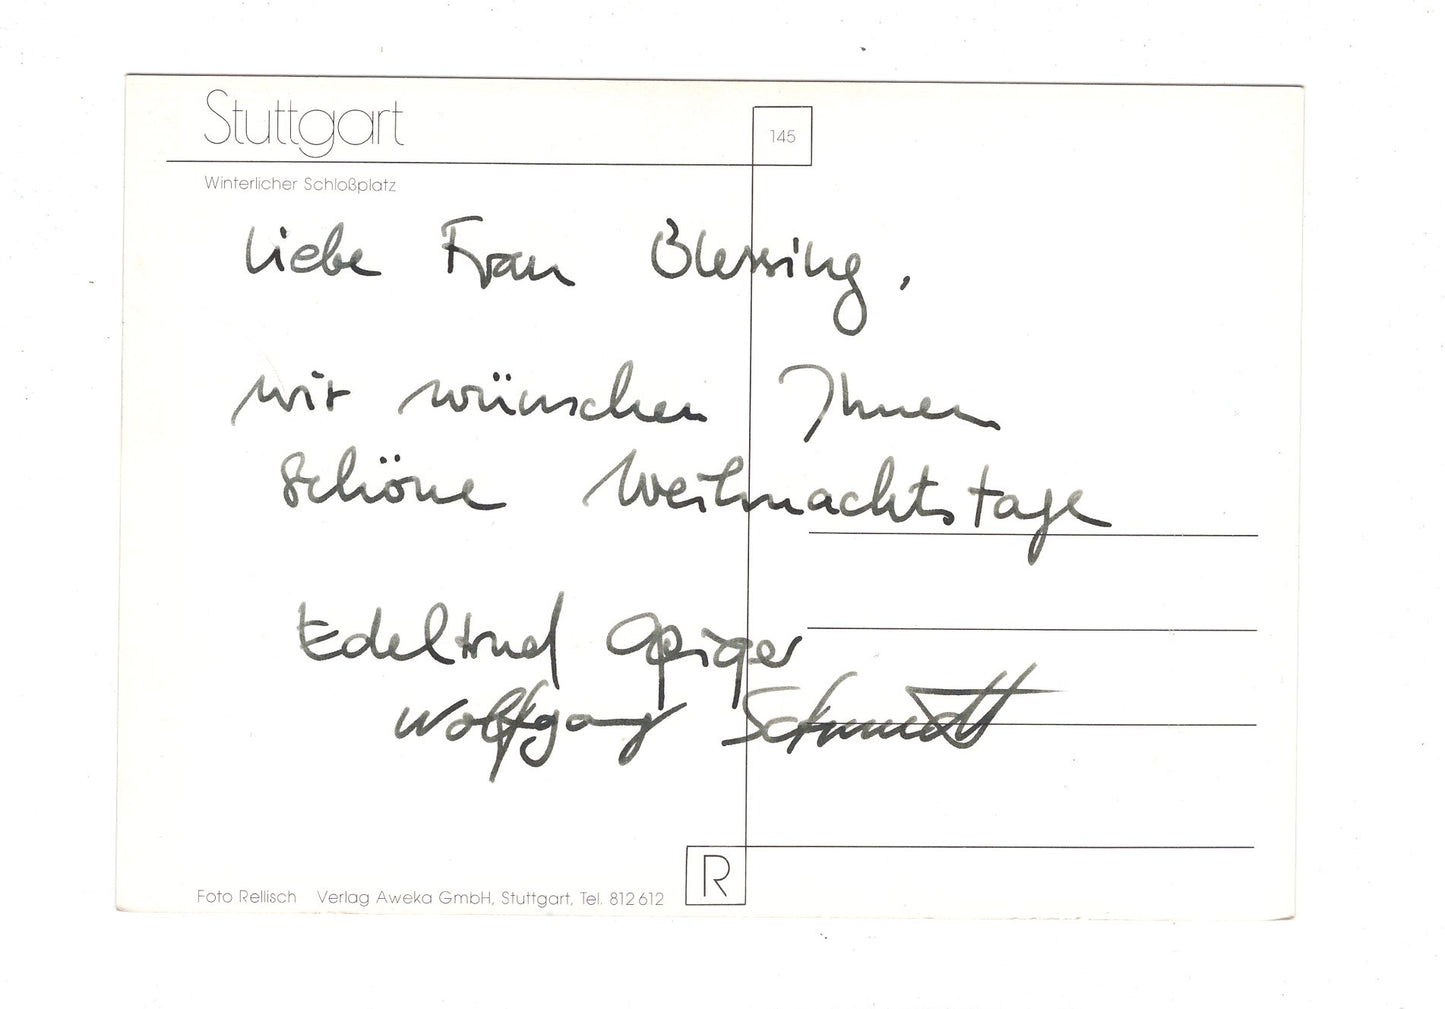 Stuttgart
145
Winterlicher Schloßplatz
Liebe Frau Blessing,
wir wünschen Ihnen
schöne Weihnachtstage
Edeltrud Geiger
Wolfgang Schmidt
R
Foto Rellisch Verlag Aweka GmbH, Stuttgart, Tel. 812 612